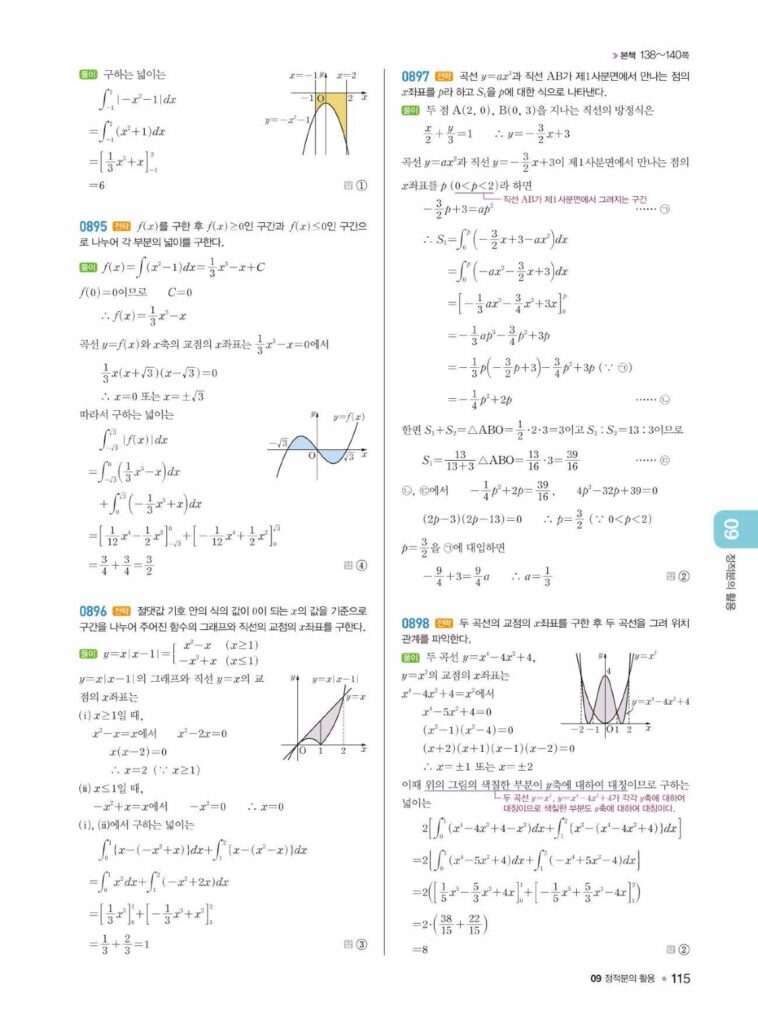 》본책 138~140쪽
풀이 구하는 넓이는
∫₋₁² |-x²-1|dx
=∫₋₁² (x²+1)dx
=[1/3 x³+x]₋₁²
=6
답 ①
x=-1 y x=2
-1 O 2 x
y=-x²-1
0895 전략 f(x)를 구한 후 f(x)≥0인 구간과 f(x)≤0인 구간으
로 나누어 각 부분의 넓이를 구한다.
풀이 f(x)=∫(x²-1)dx=1/3 x³-x+C
f(0)=0이므로 C=0
∴ f(x)=1/3 x³-x
곡선 y=f(x)와 x축의 교점의 x좌표는 1/3 x³-x=0에서
1/3 x(x+√3)(x-√3)=0
∴ x=0 또는 x=±√3
따라서 구하는 넓이는
∫_{-√3}^{√3} |f(x)|dx
=∫_{-√3}^{0} (1/3 x³-x)dx
+∫_{0}^{√3} (-1/3 x³+x)dx
=[1/12 x⁴-1/2 x²]_{-√3}^{0}+[-1/12 x⁴+1/2 x²]_{0}^{√3}
=3/4+3/4=3/2
답 ④
y y=f(x)
-√3 O √3 x
0896 전략 절댓값 기호 안의 식의 값이 0이 되는 x의 값을 기준으로
구간을 나누어 주어진 함수의 그래프와 직선의 교점의 x좌표를 구한다.
풀이 y=x|x-1|={ x²-x (x≥1)
-x²+x (x≤1)
y=x|x-1|의 그래프와 직선 y=x의 교
점의 x좌표는
(i) x≥1일 때,
x²-x=x에서 x²-2x=0
x(x-2)=0
∴ x=2 (∵ x≥1)
(ii) x≤1일 때,
-x²+x=x에서 -x²=0 ∴ x=0
(i), (ii)에서 구하는 넓이는
∫₀¹ {x-(-x²+x)}dx+∫₁² {x-(x²-x)}dx
=∫₀¹ x²dx+∫₁² (-x²+2x)dx
=[1/3 x³]₀¹+[-1/3 x³+x²]₁²
=1/3+2/3=1
답 ③
y y=x|x-1|
y=x
O 1 2 x
0897 전략 곡선 y=ax²과 직선 AB가 제1사분면에서 만나는 점의
x좌표를 p라 하고 S₁을 p에 대한 식으로 나타낸다.
풀이 두 점 A(2, 0), B(0, 3)을 지나는 직선의 방정식은
x/2+y/3=1 ∴ y=-3/2 x+3
곡선 y=ax²과 직선 y=-3/2 x+3이 제1사분면에서 만나는 점의
x좌표를 p (0<p<2)라 하면
직선 AB가 제1사분면에서 그려지는 구간
-3/2 p+3=ap² …… ㉠
∴ S₁=∫₀ᵖ (-3/2 x+3-ax²)dx
=∫₀ᵖ (-ax²-3/2 x+3)dx
=[-1/3 ax³-3/4 x²+3x]₀ᵖ
=-1/3 ap³-3/4 p²+3p
=-1/3 p(-3/2 p+3)-3/4 p²+3p (∵ ㉠)
=-1/4 p²+2p …… ㉡
한편 S₁+S₂=△ABO=1/2·2·3=3이고 S₁ : S₂=13 : 3이므로
S₁=13/(13+3) △ABO=13/16·3=39/16 …… ㉢
㉡, ㉢에서 -1/4 p²+2p=39/16, 4p²-32p+39=0
(2p-3)(2p-13)=0 ∴ p=3/2 (∵ 0<p<2)
p=3/2을 ㉠에 대입하면
-9/4+3=9/4 a ∴ a=1/3
답 ②
0898 전략 두 곡선의 교점의 x좌표를 구한 후 두 곡선을 그려 위치
관계를 파악한다.
풀이 두 곡선 y=x⁴-4x²+4,
y=x²의 교점의 x좌표는
x⁴-4x²+4=x²에서
x⁴-5x²+4=0
(x²-1)(x²-4)=0
(x+2)(x+1)(x-1)(x-2)=0
∴ x=±1 또는 x=±2
y y=x²
4
y=x⁴-4x²+4
-2 -1 O 1 2 x
이때 위의 그림의 색칠한 부분이 y축에 대하여 대칭이므로 구하는
두 곡선 y=x², y=x⁴-4x²+4가 각각 y축에 대하여
대칭이므로 색칠한 부분도 y축에 대하여 대칭이다.
넓이는
2[∫₀¹ (x⁴-4x²+4-x²)dx+∫₁² {x²-(x⁴-4x²+4)}dx]
=2{∫₀¹ (x⁴-5x²+4)dx+∫₁² (-x⁴+5x²-4)dx}
=2([1/5 x⁵-5/3 x³+4x]₀¹+[-1/5 x⁵+5/3 x³-4x]₁²)
=2·(38/15+22/15)
=8
답 ②
09
정적분의 활용
09 정적분의 활용 ★ 115